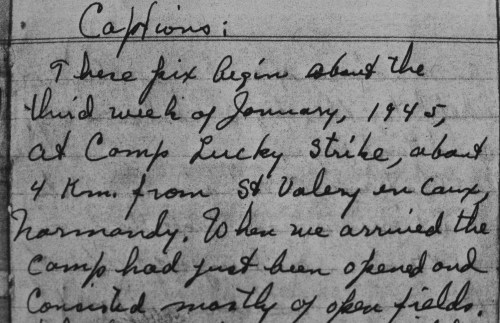 Captions:
These pix begin about the
third week of January, 1945,
at Camp Lucky Strike, about
4 Km. from St Valery en Caux,
Normandy. When we arrived the
camp had just been opened and
consisted mostly of open fields.